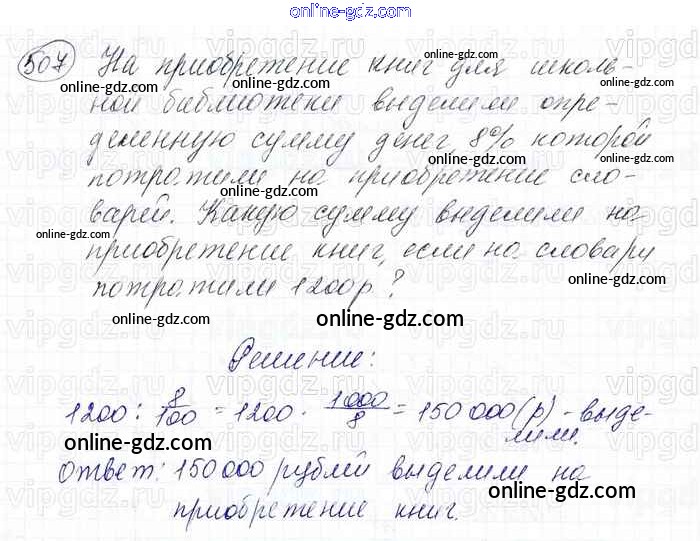 online-gdz.com
507 На приобретение книг для школь-
ной библиотеки выделили опре-
деленную сумму денег, 8% которой
потратили на приобретение сло-
варей. Какую сумму выделили на
приобретение книг, если на словари
потратили 1200р?
Решение:
1200 : 8/100 = 1200 · 1000/8 = 150 000 (р) - выде-
лили.
Ответ: 150 000 рублей выделили на
приобретение книг.
online-gdz.com
online-gdz.com
online-gdz.com
online-gdz.com
online-gdz.com
online-gdz.com
online-gdz.com
online-gdz.com
online-gdz.com
online-gdz.com
online-gdz.com
online-gdz.com